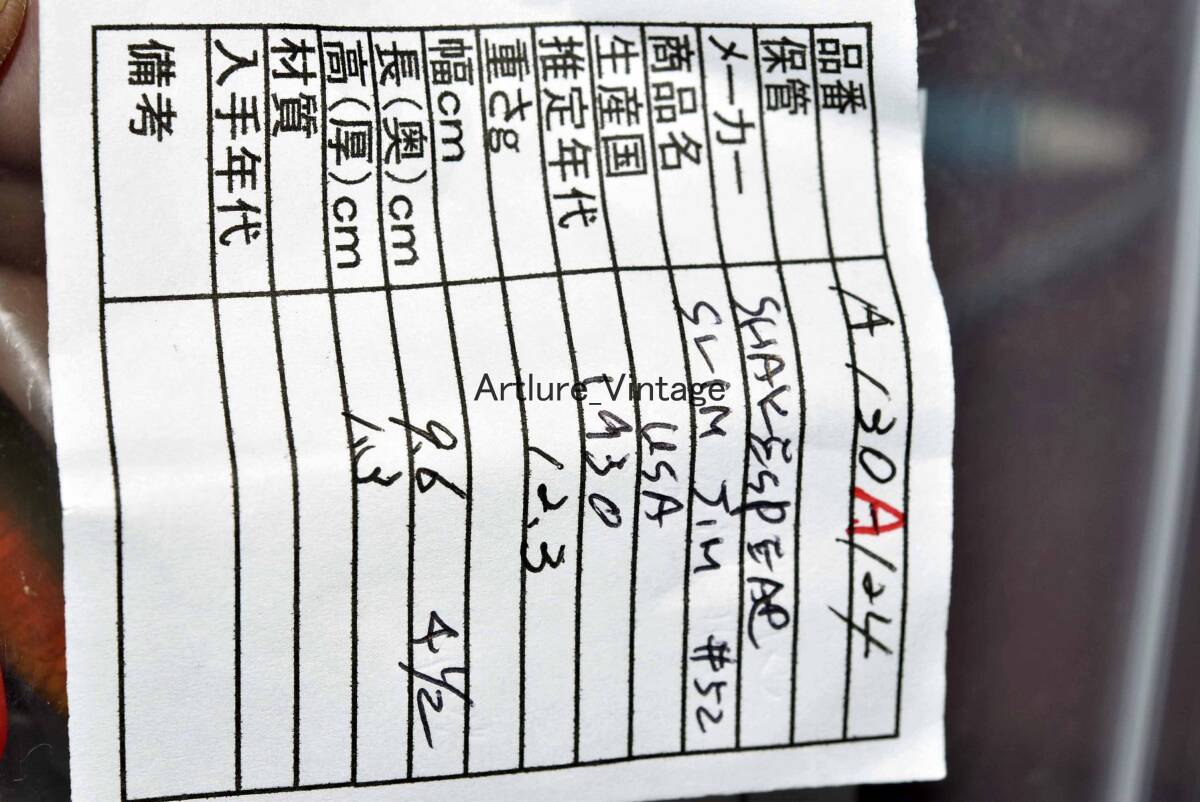 品番 A130A124
保管
メーカー SHAKESPEAR
商品名 SLIM JIM #52
生産国 USA
推定年代 1930
重さg 12.3
幅cm
長(奥)cm 9.6 4 1/2
高(厚)cm 1.3
材質
入手年代
備考
Artlure_Vintage